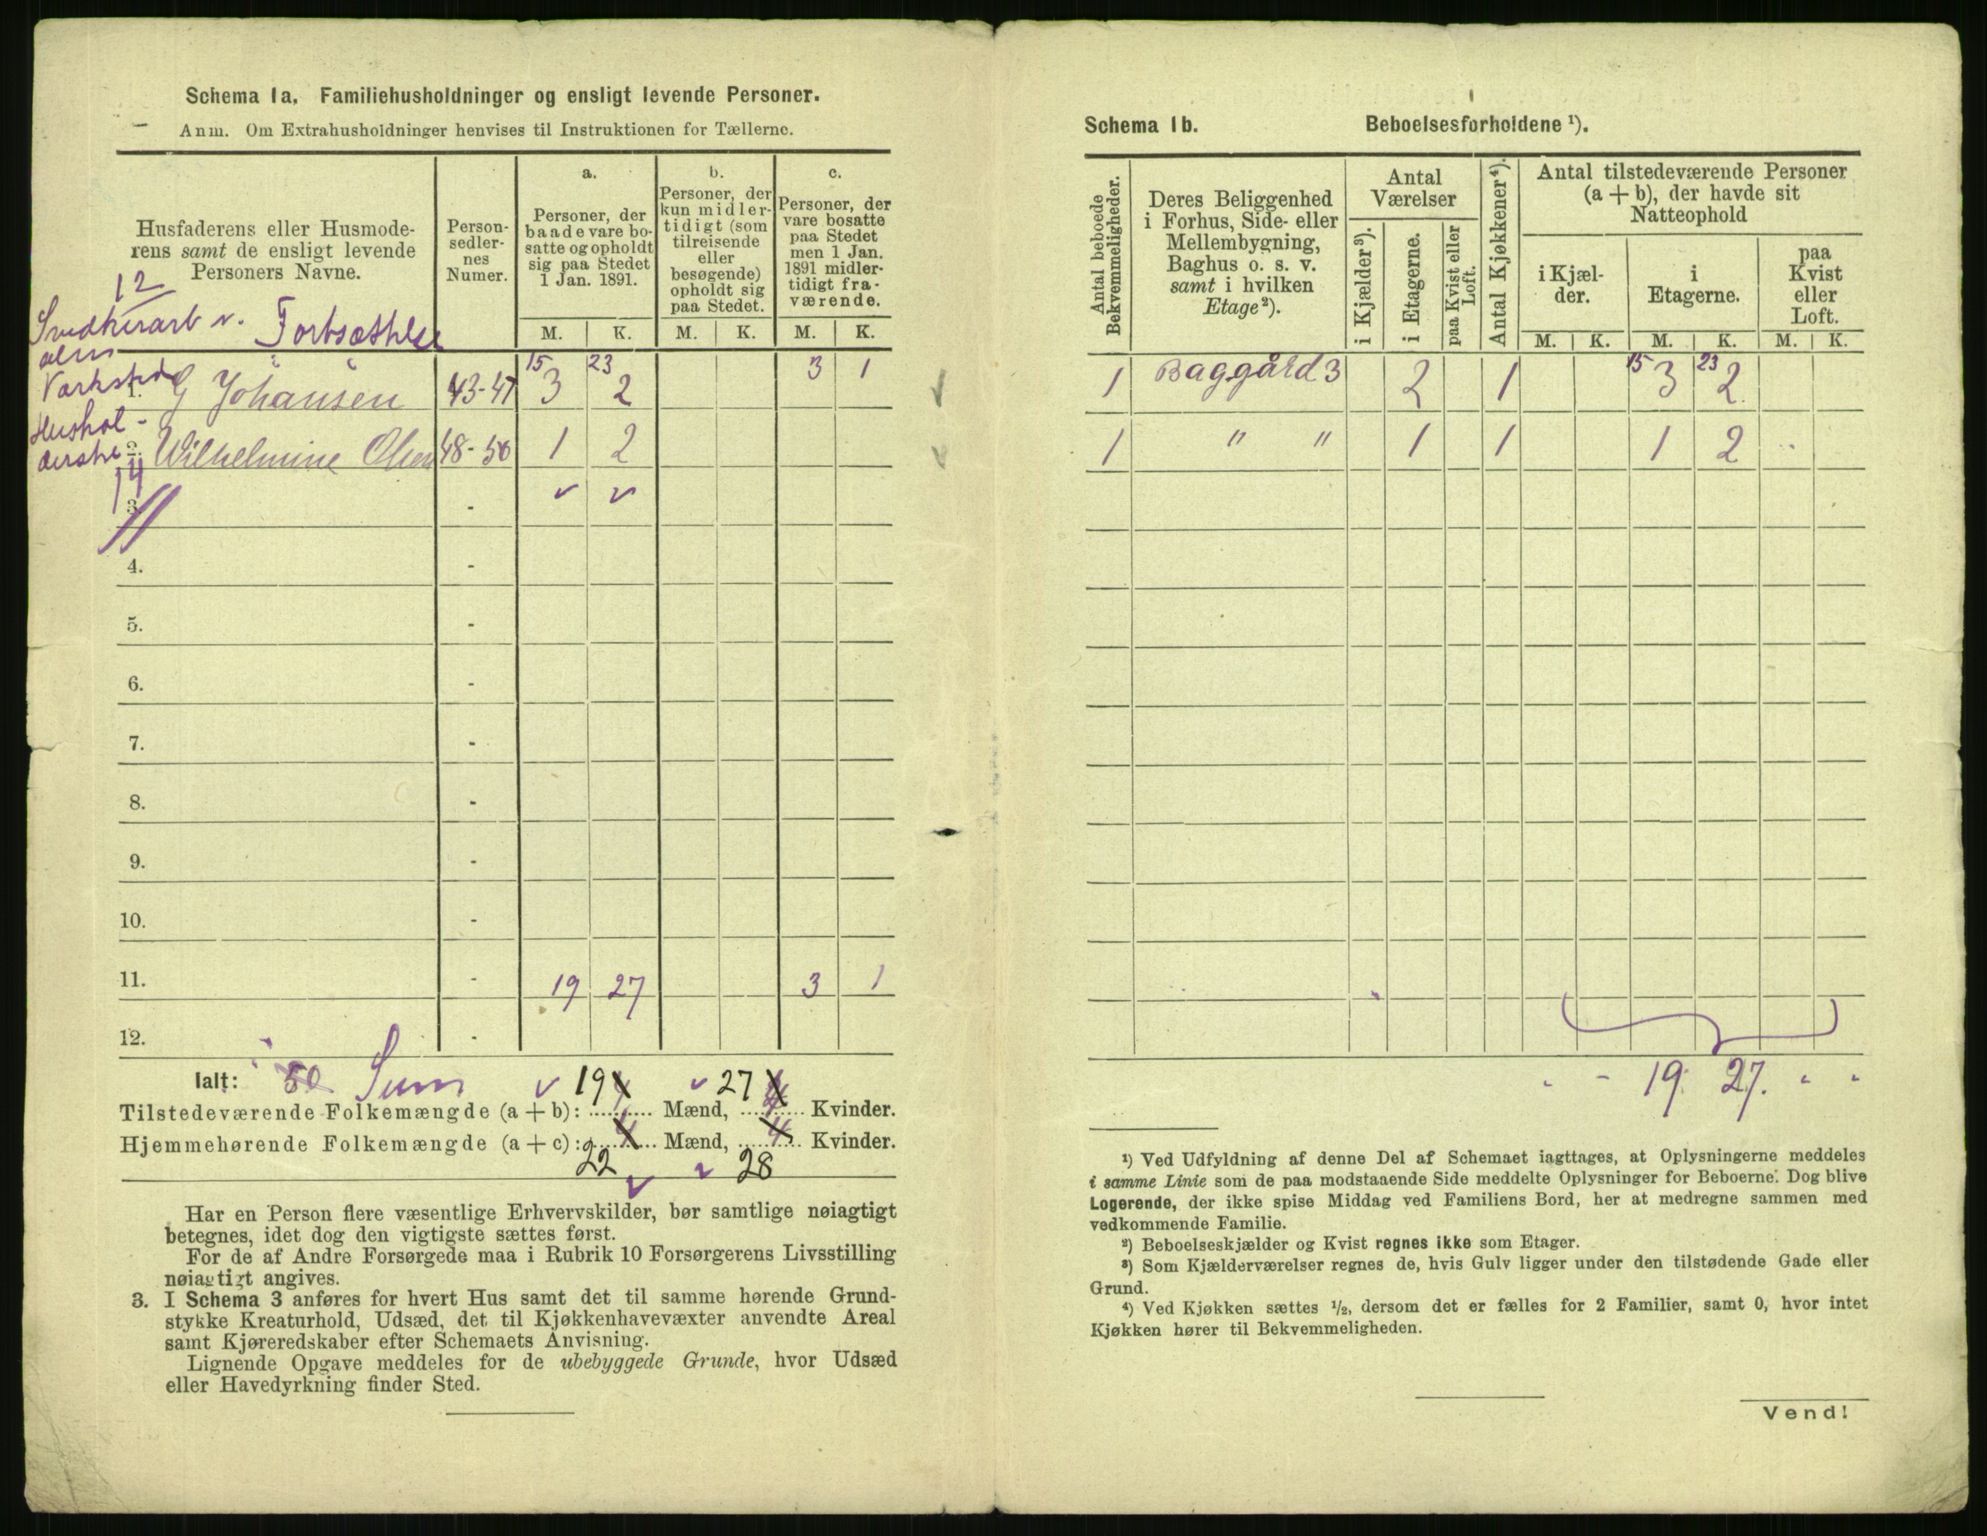 Schema 1a. Familiehusholdninger og ensligt levende Personer.
Anm. Om Extrahusholdninger henvises til Instruktionen for Tællerne.
Husfaderens eller Husmode-
rens samt de ensligt levende
Personers Navne.
Person-
sedler-
nes
Numer.
a.
Personer, der
baade vare bo-
satte og opholdt
sig paa Stedet
1 Jan. 1891.
b.
Personer, der
kun midler-
tidigt (som
tilreisende
eller
besøgende)
opholdt sig
paa Stedet.
c.
Personer, der
vare bosatte
paa Stedet
men 1 Jan.
1891 midler-
tidigt fra-
værende.
M. K. M. K. M. K.
12
Fortsættelse
Hushol-
15 23
1. G Johansen 43-47 3 2 3 1
2. Wilhelmine Olsen 48-50 1 2
14
3. - v v
4. -
5. -
6. -
7. -
8. -
9. -
10. -
11. - 19 27 3 1
12. -
Ialt: 50 Sum v 19 v 27
Tilstedeværende Folkemængde (a + b): Mænd, Kvinder.
Hjemmehørende Folkemængde (a + c): 4 Mænd, 4 Kvinder.
22 v v 28
Har en Person flere væsentlige Erhvervskilder, bør samtlige nøiagtigt
betegnes, idet dog den vigtigste sættes først.
For de af Andre Forsørgede maa i Rubrik 10 Forsørgerens Livsstilling
nøiagtigt angives.
3. I Schema 3 anføres for hvert Hus samt det til samme hørende Grund-
stykke Kreaturhold, Udsæd, det til Kjøkkenhavevæxter anvendte Areal
samt Kjøreredskaber efter Schemaets Anvisning.
Lignende Opgave meddeles for de ubebyggede Grunde, hvor Udsæd
eller Havedyrkning finder Sted.
Schema 1b. Beboelsesforholdene ¹).
Antal beboede
Bekvemmeligheder.
Deres Beliggenhed
i Forhus, Side- eller
Mellembygning,
Baghus o. s. v.
samt i hvilken
Etage²).
Antal
Værelser
i Kjælder³).
i Etagerne.
paa Kvist eller
Loft.
Antal Kjøkkener⁴).
Antal tilstedeværende Personer
(a + b), der havde sit
Natteophold
i Kjæl-
der.
i
Etagerne.
paa
Kvist
eller
Loft.
M. K. M. K. M. K.
15 23
1 Baggård 3 2 1 3 2
1 " " 1 1 1 2
19 27.
¹) Ved Udfyldning af denne Del af Schemaet iagttages, at Oplysningerne meddeles
i samme Linie som de paa modstaaende Side meddelte Oplysninger for Beboerne. Dog blive
Logerende, der ikke spise Middag ved Familiens Bord, her at medregne sammen med
vedkommende Familie.
²) Beboelseskjælder og Kvist regnes ikke som Etager.
³) Som Kjælderværelser regnes de, hvis Gulv ligger under den tilstødende Gade eller
Grund.
⁴) Ved Kjøkken sættes ½, dersom det er fælles for 2 Familier, samt 0, hvor intet
Kjøkken hører til Bekvemmeligheden.
Vend!